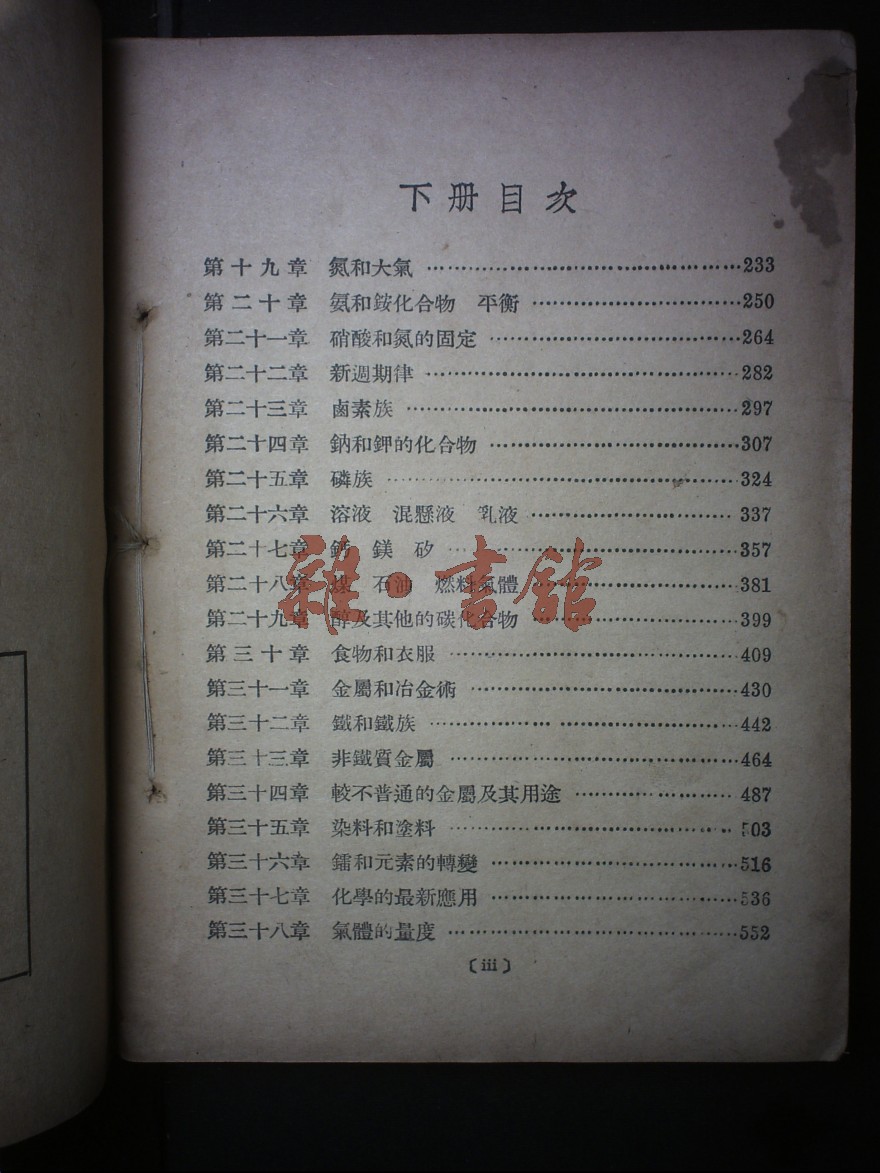 下册目次
第十九章 氮和大氣 ……………………………………233
第二十章 氨和銨化合物 平衡 ……………………………………250
第二十一章 硝酸和氮的固定 ……………………………………264
第二十二章 新週期律 ……………………………………282
第二十三章 鹵素族 ……………………………………297
第二十四章 鈉和鉀的化合物 ……………………………………307
第二十五章 磷族 ……………………………………324
第二十六章 溶液 混懸液 乳液 ……………………………………337
第二十七章 鈣 鎂 矽 ……………………………………357
第二十八章 煤 石油 燃料氣體 ……………………………………381
第二十九章 醇及其他的碳化合物 ……………………………………399
雜·書館
第三十章 食物和衣服 ……………………………………409
第三十一章 金屬和冶金術 ……………………………………430
第三十二章 鐵和鐵族 ……………………………………442
第三十三章 非鐵質金屬 ……………………………………464
第三十四章 較不普通的金屬及其用途 ……………………………………487
第三十五章 染料和塗料 ……………………………………503
第三十六章 鐳和元素的轉變 ……………………………………516
第三十七章 化學的最新應用 ……………………………………536
第三十八章 氣體的量度 ……………………………………552
〔iii〕